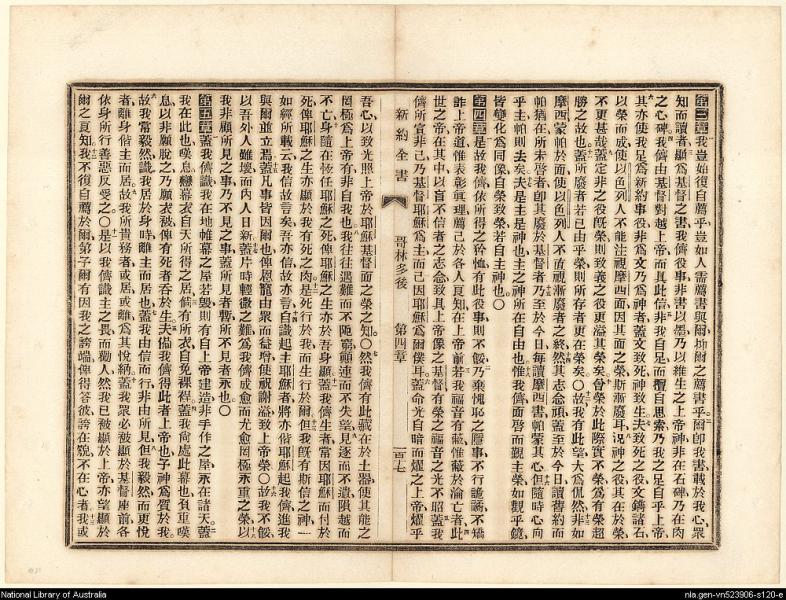 第三章我豈始復自薦乎豈如人需薦書與爾抑爾之薦書乎爾卽我書載於我心衆
知而讀者顯爲基督之書我儕役事非書以墨乃以維生之上帝神非在石碑乃在肉
之心碑我儕由基督對越上帝而其此信非我自足而擅自思索乃我之足自乎上帝
其亦使我足爲新約事役非爲文乃爲神者蓋文致死神致生夫致死之役文鐫諸石
以榮而成使以色列人不能注視摩西面因其面之榮斯漸廢耳況神之役其在於榮
不更甚哉蓋定非之役旣榮則致義之役更溢其榮矣曾榮於此際實不榮爲有榮超
勝之故也蓋所廢者若已由乎榮則所存者更在榮矣〇故我有此望大爲侃然非如
摩西蒙帕於面使以色列人不視漸廢者之終然其志念頑蓋至於今日讀舊約而
帕猶在所未啓者卽其廢於基督者乃至於今日每讀摩西書帕蒙其心但隨時心向
乎主帕則去矣夫是主是神也主之神所在自由也惟我儕面啓而觀主榮如觀乎鏡
皆變化爲同像自榮致榮若自主神也〇
第四章是故我儕依所得之矜恤有此役事則不餒乃棄愧恥之隱事不行詭譎不矯
誣上帝道惟表彰眞理薦己於各人良知在上帝前若我福音有蔽惟蔽於淪亡者此
世之帝在其中以盲不信者之志念致其上帝像之基督有榮之福音之光不昭蓋我
儕所宣非己乃基督耶穌爲主而己因耶穌爲爾僕耳蓋命光自暗而燿之上帝燿乎
新約全書 哥林多後 第四章 一百七
吾心以致光照上帝於耶穌基督面之榮之知〇然我儕有此藏在於土器使其能之
罔極爲上帝有非自我也我往往遇難而不阨窮顚連而不失望見逐而不遺隕越而
不亡身隨在恆任耶穌之死俾耶穌之生亦於吾身顯蓋我儕生者常因耶穌而付於
死俾耶穌之生亦顯於我有死之肉是死行於我而生行於爾但我旣有斯信之神一
如經所載云我信故言矣吾亦信故亦言自識起主耶穌者將亦偕耶穌起我儕進我
與爾並立焉蓋凡事皆因爾也俾恩寵由衆而益增使祝謝溢致上帝榮〇故我不餒
以吾外人雖壞而內人日新蓋片時輕微之難爲我儕成愈而尤愈罔極永重之榮以
我非顧所見之事乃不見之事蓋所見者暫所不見者永也〇
第五章蓋我儕識我在地帷幕之屋若毀則有自上帝建造非手作之屋永在諸天蓋
我在此也嘆息戀幕衣自天所得之居儻有所衣自免裸裎蓋我尙處此幕也負重嘆
息以非願脫之乃願衣被俾有死者吞於生夫備我儕得此者上帝也予神爲質於我
故我常毅然識我居於身時離主而居也蓋我由信而行非由所見但我毅然而更悅
者離身偕主而居故我所貴務者或居或離爲其悅納蓋我衆必被顯於基督座前各
依身所行善惡反受之〇是以我儕識主之畏而勸人然我已被顯於上帝亦望顯於
爾之良知我不復自薦於爾第予爾有因我之誇端俾得答彼誇在貌不在心者我或
National Library of Australia
nla.gen-vn523906-s120-e